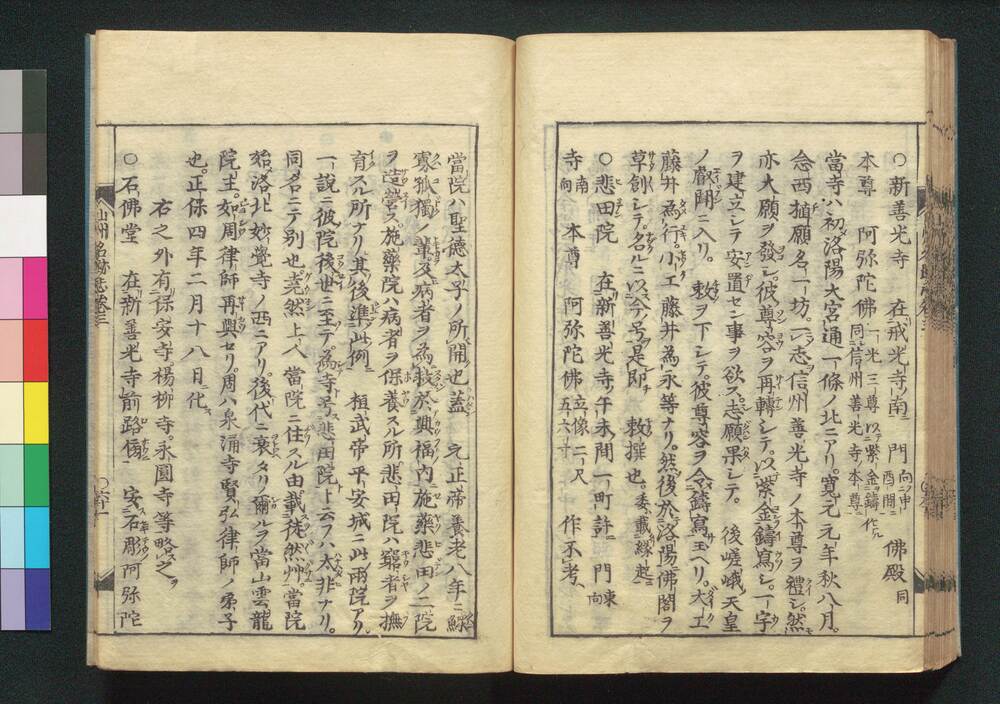 ○新善光寺 在戒光寺ノ南ニ 門 向申酉間ニ 佛殿 同
本尊 阿弥陀佛 一光三尊以紫金鑄作ル同信州善光寺ノ本尊ニ
當寺ハ初洛陽大宮通一條ノ北ニアリ。寛元元年秋八月。
念西植願名一坊。一志信州善光寺ノ本尊ヲ禮シ。然モ
亦大願ヲ發シ。彼尊容ヲ再轉シテ。以紫金鑄寫シ。一宇
ヲ建立シテ安置セン事ヲ欲ス。志願果シテ。 後嵯峨天皇
ノ叡聞ニ入リ。 敕ヲ下シテ。彼尊容ヲ令鑄寫玉ヘリ。大工
藤井為行。小工藤井為永等ナリ。然後於洛陽佛閣ヲ
草創シテ。名ルニ以今ノ号。是即 敕撰也。委載縁起ニ
○悲田院 在新善光寺ノ午未間一町許ニ 門 東向
寺 南向 本尊 阿弥陀佛 立像二尺五六寸 作不考
當院ハ聖徳太子ノ所開也。蓋 元正帝養老八年ニ鰥
寡孤獨ノ輩及病者ヲ為救於興福内施藥悲田ノ二院
ヲ造營ス。施藥院ハ病者ヲ保養スル所悲田院ハ窮者ヲ撫
育スル所ナリ。其後準此例ニ 桓武帝平安城ニ此ノ兩院アリ。
一說ニ彼院後世ニ至テ。為寺号悲田院ト云フハ太非ナリ。
同名ニテ別也。尭然上人當院ニ住スル由載徒然艸。當院
始洛北妙覺寺ノ西ニアリ。後代ニ衰タリ爾ルヲ當山雲龍
院主。如周律師再興セリ。周ハ泉涌寺賢弘律師ノ弟子
也。正保四年二月十八日化ス
右之外有保安寺楊柳寺。永圓寺等略之ヲ
○石佛堂 在新善光寺前路傍ニ 安石彫阿弥陀
山州名跡志巻三